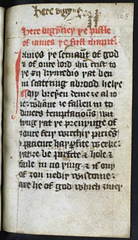 here bigyneþ
Here bigyneþ þe pistle
of iames þe first chapitre
James þe seruant of god
& of oure lord ihu crist to
þe kynredis þat ben
in scateryng abrood helþe
breþeren deme ȝe al io
ie whanne ȝe fallen in to
diuerce temptaciouns wi
tyng þat þe preuynge of
ȝoure feiþ worchiþ pacience
pacience haþ perfit werk
þat ȝe be perfite & hole &
faile in no þing and if ony
of ȝou nediþ wisdome
axe he of god which ȝiueþ